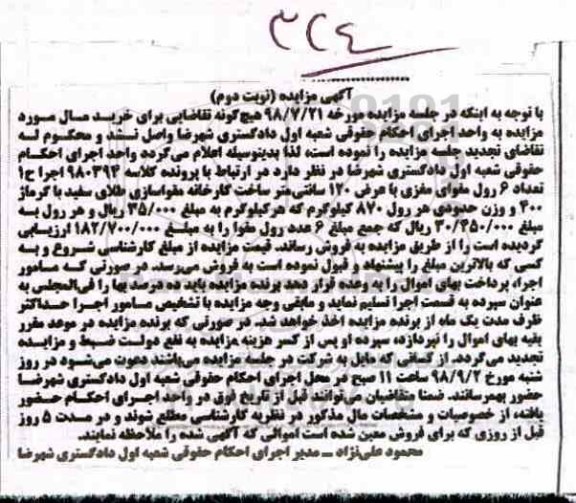 ۳۲۴
آگهی مزایده (نوبت دوم)
با توجه به اینکه در جلسه مزایده مورخه ۹۸/۷/۲۱ هیچ‌گونه تقاضایی برای خرید مال مورد
مزایده به واحد اجرای احکام حقوقی شعبه اول دادگستری شهرضا واصل نشد و محکوم له
تقاضای تجدید جلسه مزایده را نموده است، لذا بدینوسیله اعلام می‌گردد واحد اجرای احکام
حقوقی شعبه اول دادگستری شهرضا در نظر دارد در ارتباط با پرونده کلاسه ۹۸۰۳۹۴ اجرا ح۱
تعداد ۶ رول مقوای مغزی با عرض ۱۲۰ سانتی‌متر ساخت کارخانه مقواسازی طلای سفید با گرماژ
۴۰۰ و وزن حدودی هر رول ۸۷۰ کیلوگرم که هرکیلوگرم به مبلغ ۳۵/۰۰۰ ریال و هر رول به
مبلغ ۳۰/۴۵۰/۰۰۰ ریال که جمع مبلغ ۶ عدد رول مقوا را به مبلغ ۱۸۲/۷۰۰/۰۰۰ ارزیابی
گردیده است را از طریق مزایده به فروش رساند. قیمت مزایده از مبلغ کارشناسی شروع و به
کسی که بالاترین مبلغ را پیشنهاد و قبول نموده است به فروش می‌رسد. در صورتی که مامور
اجرا، پرداخت بهای اموال را به وعده قرار دهد برنده مزایده باید ده درصد بها را فی‌المجلس به
عنوان سپرده به قسمت اجرا تسلیم نماید و مابقی وجه مزایده با تشخیص مامور اجرا حداکثر
ظرف مدت یک ماه از برنده مزایده اخذ خواهد شد. در صورتی که برنده مزایده در موعد مقرر
بقیه بهای اموال را نپردازد، سپرده او پس از کسر هزینه مزایده به نفع دولت ضبط و مزایده
تجدید می‌گردد. از کسانی که مایل به شرکت در جلسه مزایده می‌باشند دعوت می‌شود در روز
شنبه مورخ ۹۸/۹/۲ ساعت ۱۱ صبح در محل اجرای احکام حقوقی شعبه اول دادگستری شهرضا
حضور بهمرسانند. ضمنا متقاضیان می‌توانند قبل از تاریخ فوق در واحد اجرای احکام حضور
یافته، از خصوصیات و مشخصات مال مذکور در نظریه کارشناسی مطلع شوند و در مدت ۵ روز
قبل از روزی که برای فروش معین شده است اموالی که آگهی شده را ملاحظه نمایند.
محمود علی‌نژاد ــ مدیر اجرای احکام حقوقی شعبه اول دادگستری شهرضا